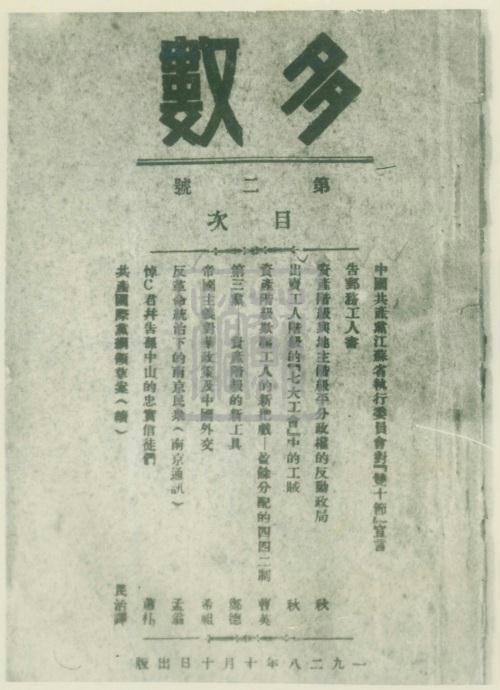 多數
第二號
目次
中國共產黨江蘇省執行委員會對『雙十節』宣言
告郵務工人書
資產階級與地主階級平分政權的反動政局 秋
出賣工人階級的『七大工會』中的工賊 秋
資產階級欺騙工人的新把戲—盈餘分配的四四二制 曹英
第三黨——資產階級的新工具 鄭德
帝國主義對華政策及中國外交 希祖
反革命統治下的南京民衆(南京通訊) 孟翁
悼C君并告孫中山的忠實信徒們 蕭朴
共產國際黨綱領草案(續) 民治譯
一九二八年十月十日出版